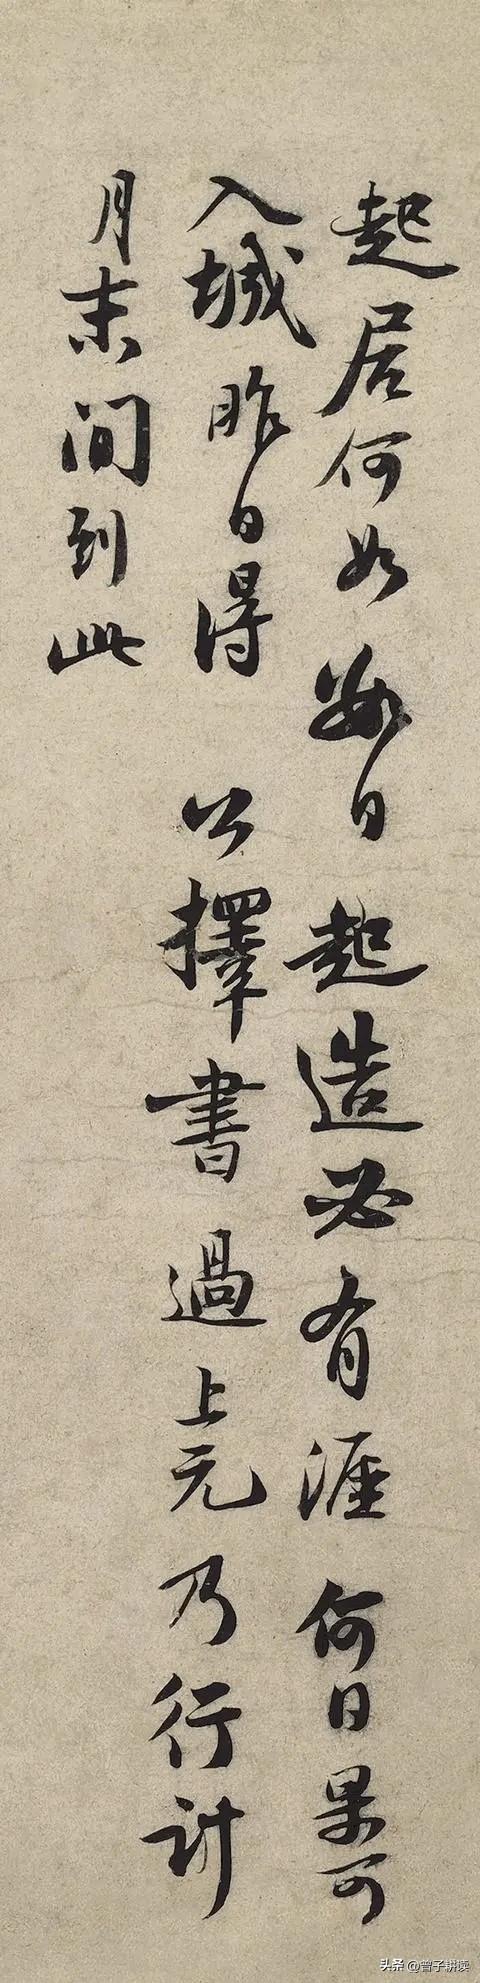 起居何如數日起造必有涯何日果可
入城昨日得公擇書過上元乃行計
月末間到此
头条@曾子耕读